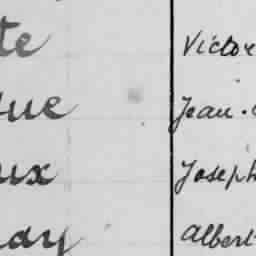 te Victor
que Jean-
ux Joseph
day Albert